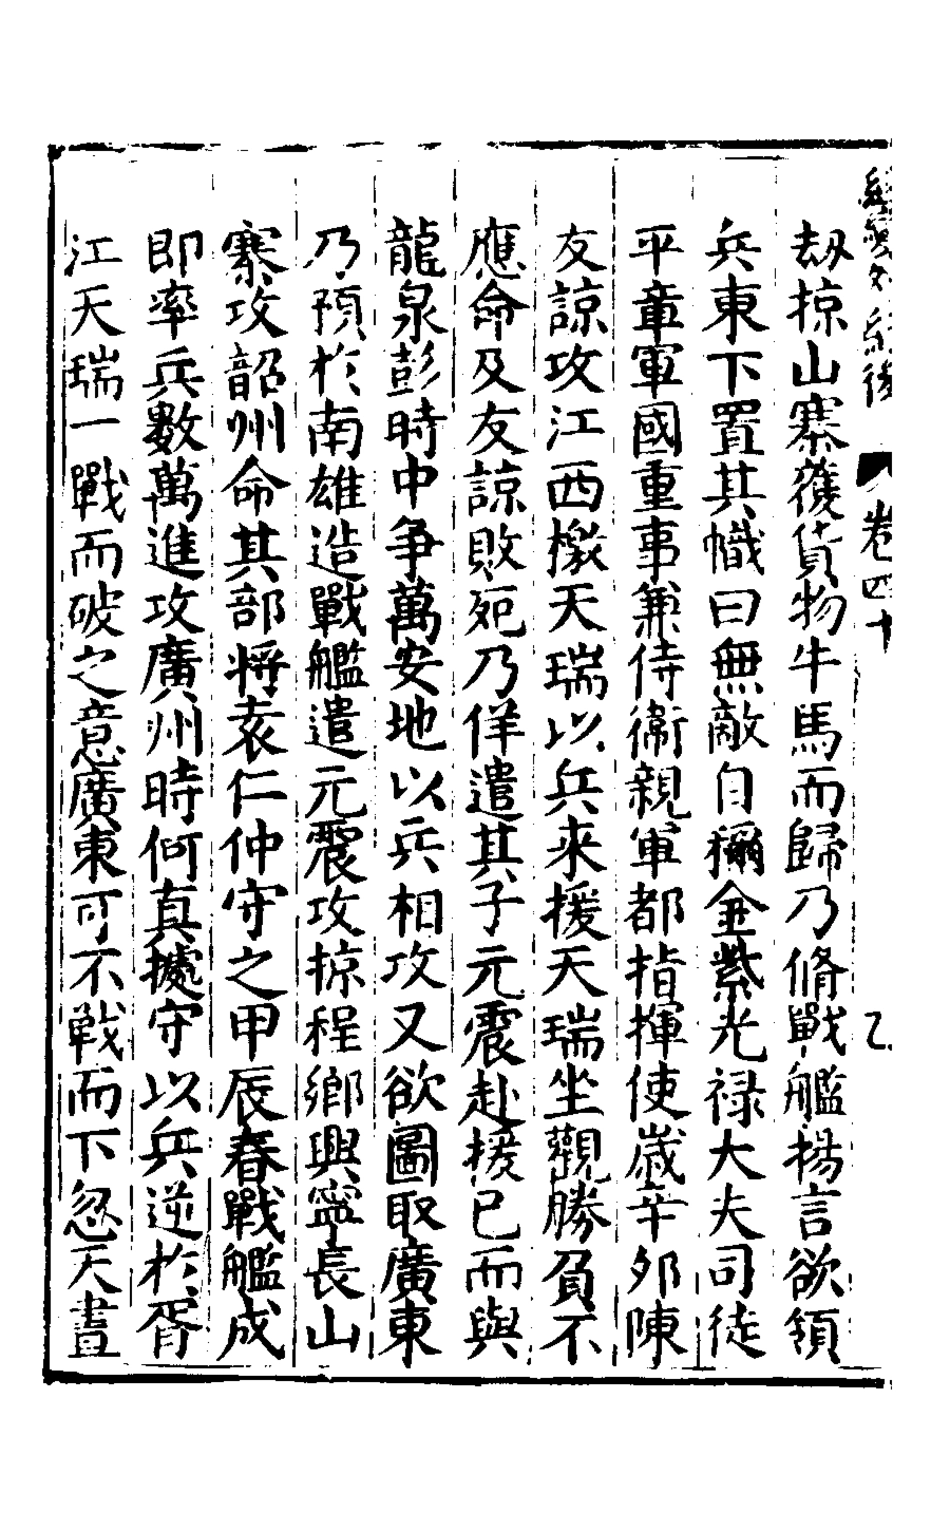 卷四十
乙
刼掠山寨獲貨物牛馬而歸乃脩戰艦揚言欲領
兵東下置其幟曰無敵自稱金紫光禄大夫司徒
平章軍國重事兼侍衞親軍都指揮使歲辛夘陳
友諒攻江西檄天瑞以兵来援天瑞坐觀勝負不
應命及友諒敗死乃佯遣其子元震赴援已而與
龍泉彭時中爭萬安地以兵相攻又欲圖取廣東
乃預於南雄造戰艦遣元震攻掠程鄉興寧長山
寨攻韶州命其部将袁仁仲守之甲辰春戰艦成
即率兵數萬進攻廣州時何真據守以兵逆於胥
江天瑞一戰而破之意廣東可不戰而下忽天晝